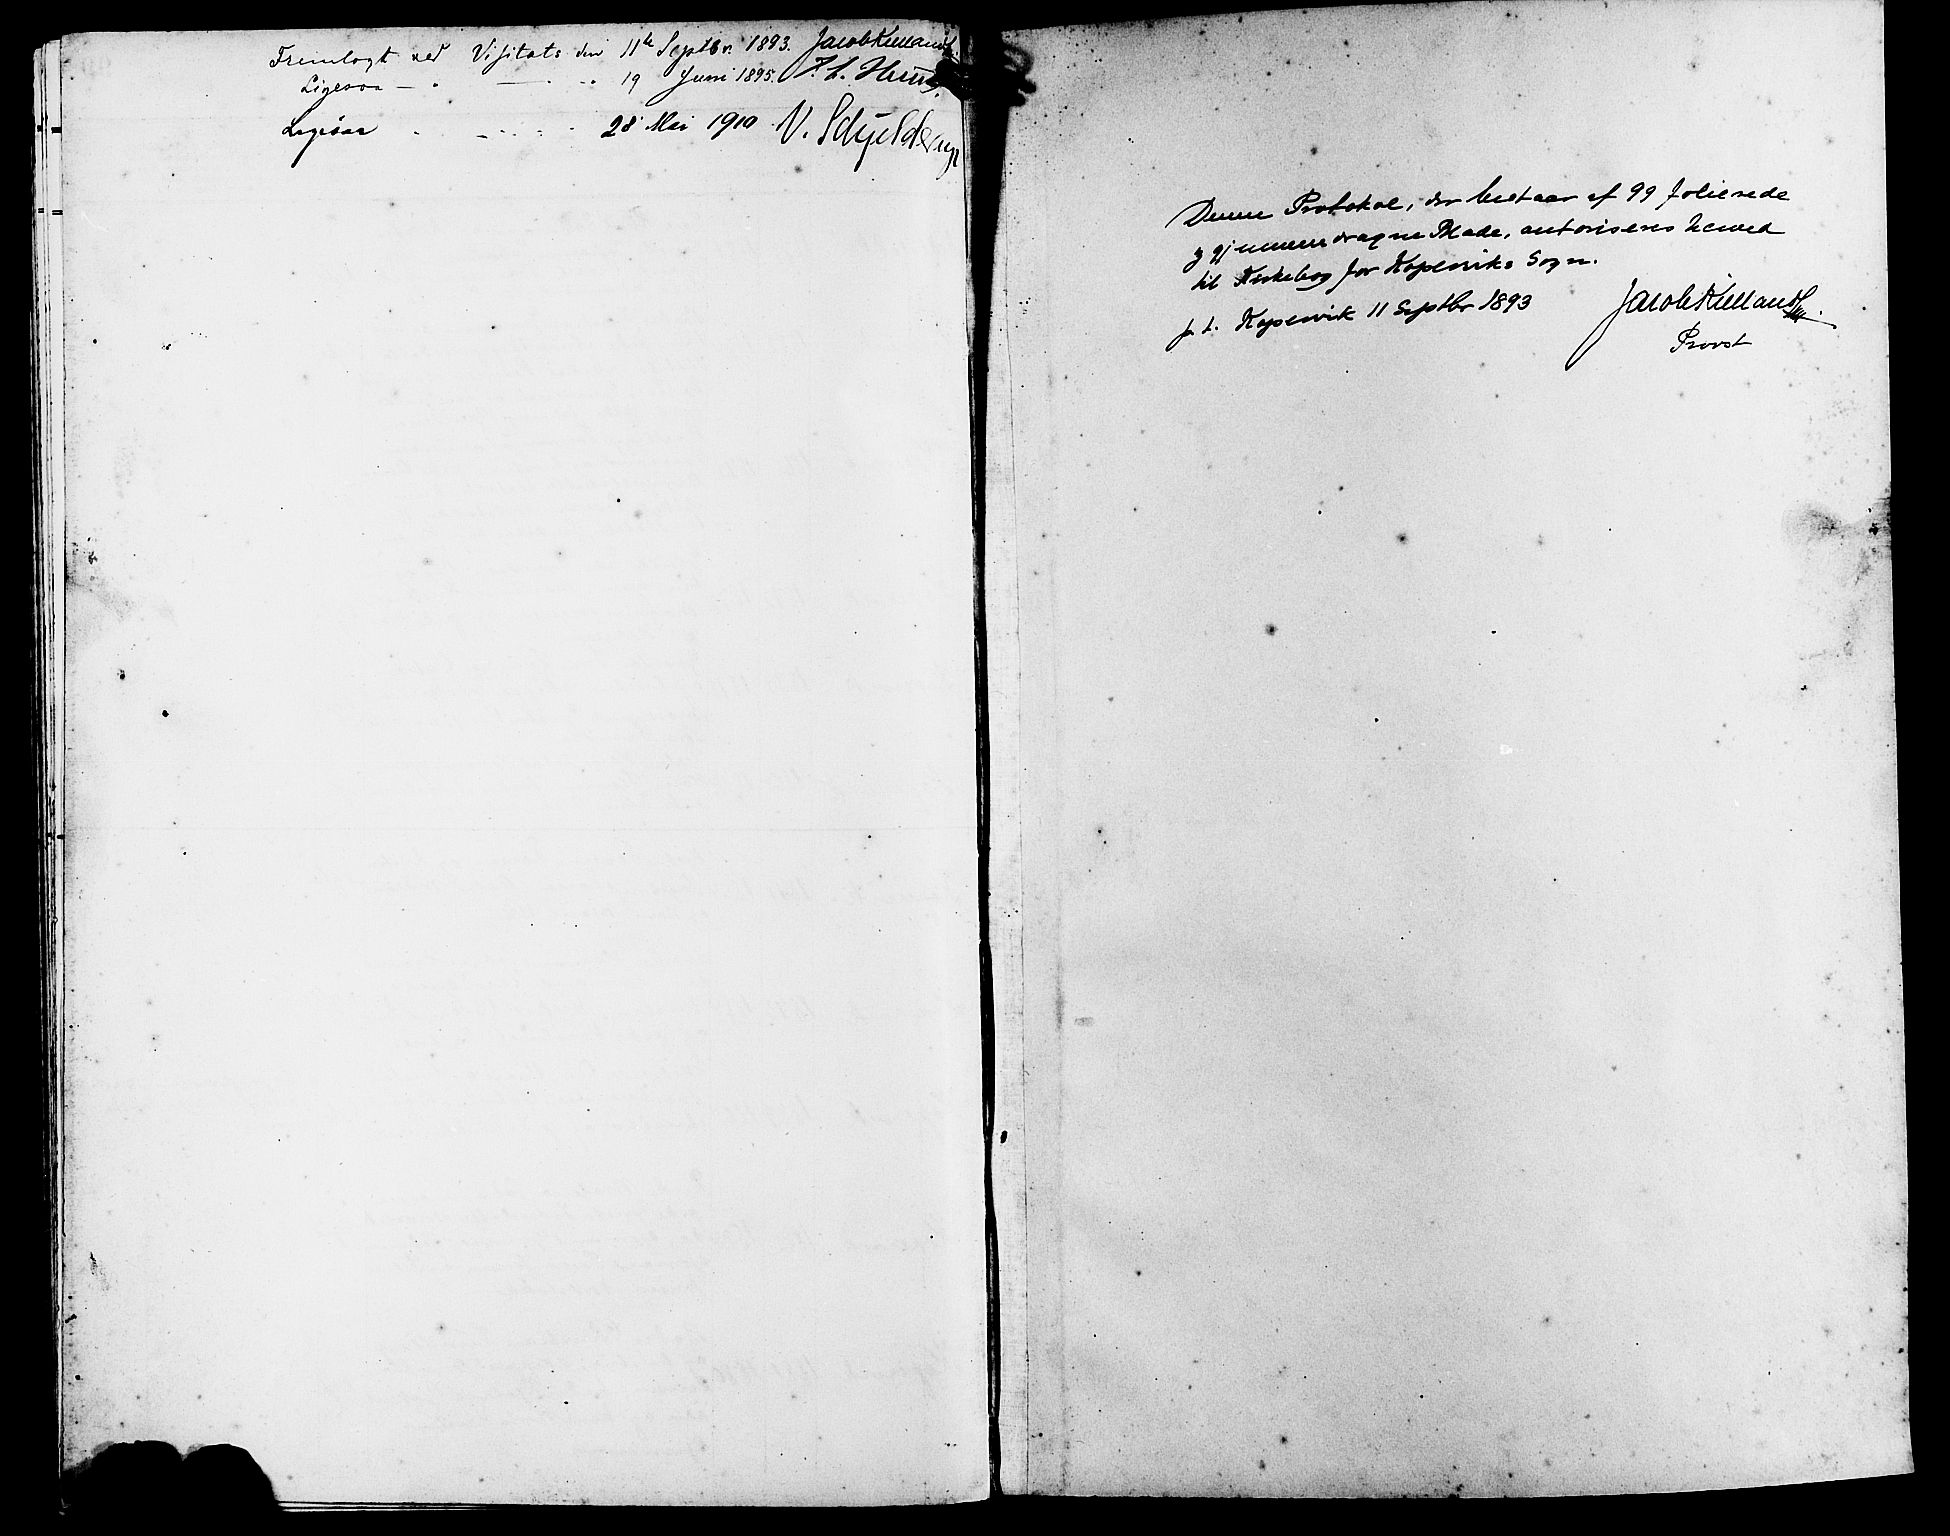 Fremlagt ved Visitats den 11te Septbr. 1893. Jacob Kielland
Ligesaa — " — " 19 Juni 1895.
Ligesaa " - - - - 28' Mai 1910 V. Schjelderup
Denne Protokol, der bestaar af 99 folierede
og gjennemdragne Blade, autoriseres herved
til Kirkebog for Kopervik Sogn.
p. t. Kopervik 11 Septbr 1893 Jacob Kielland
Provst